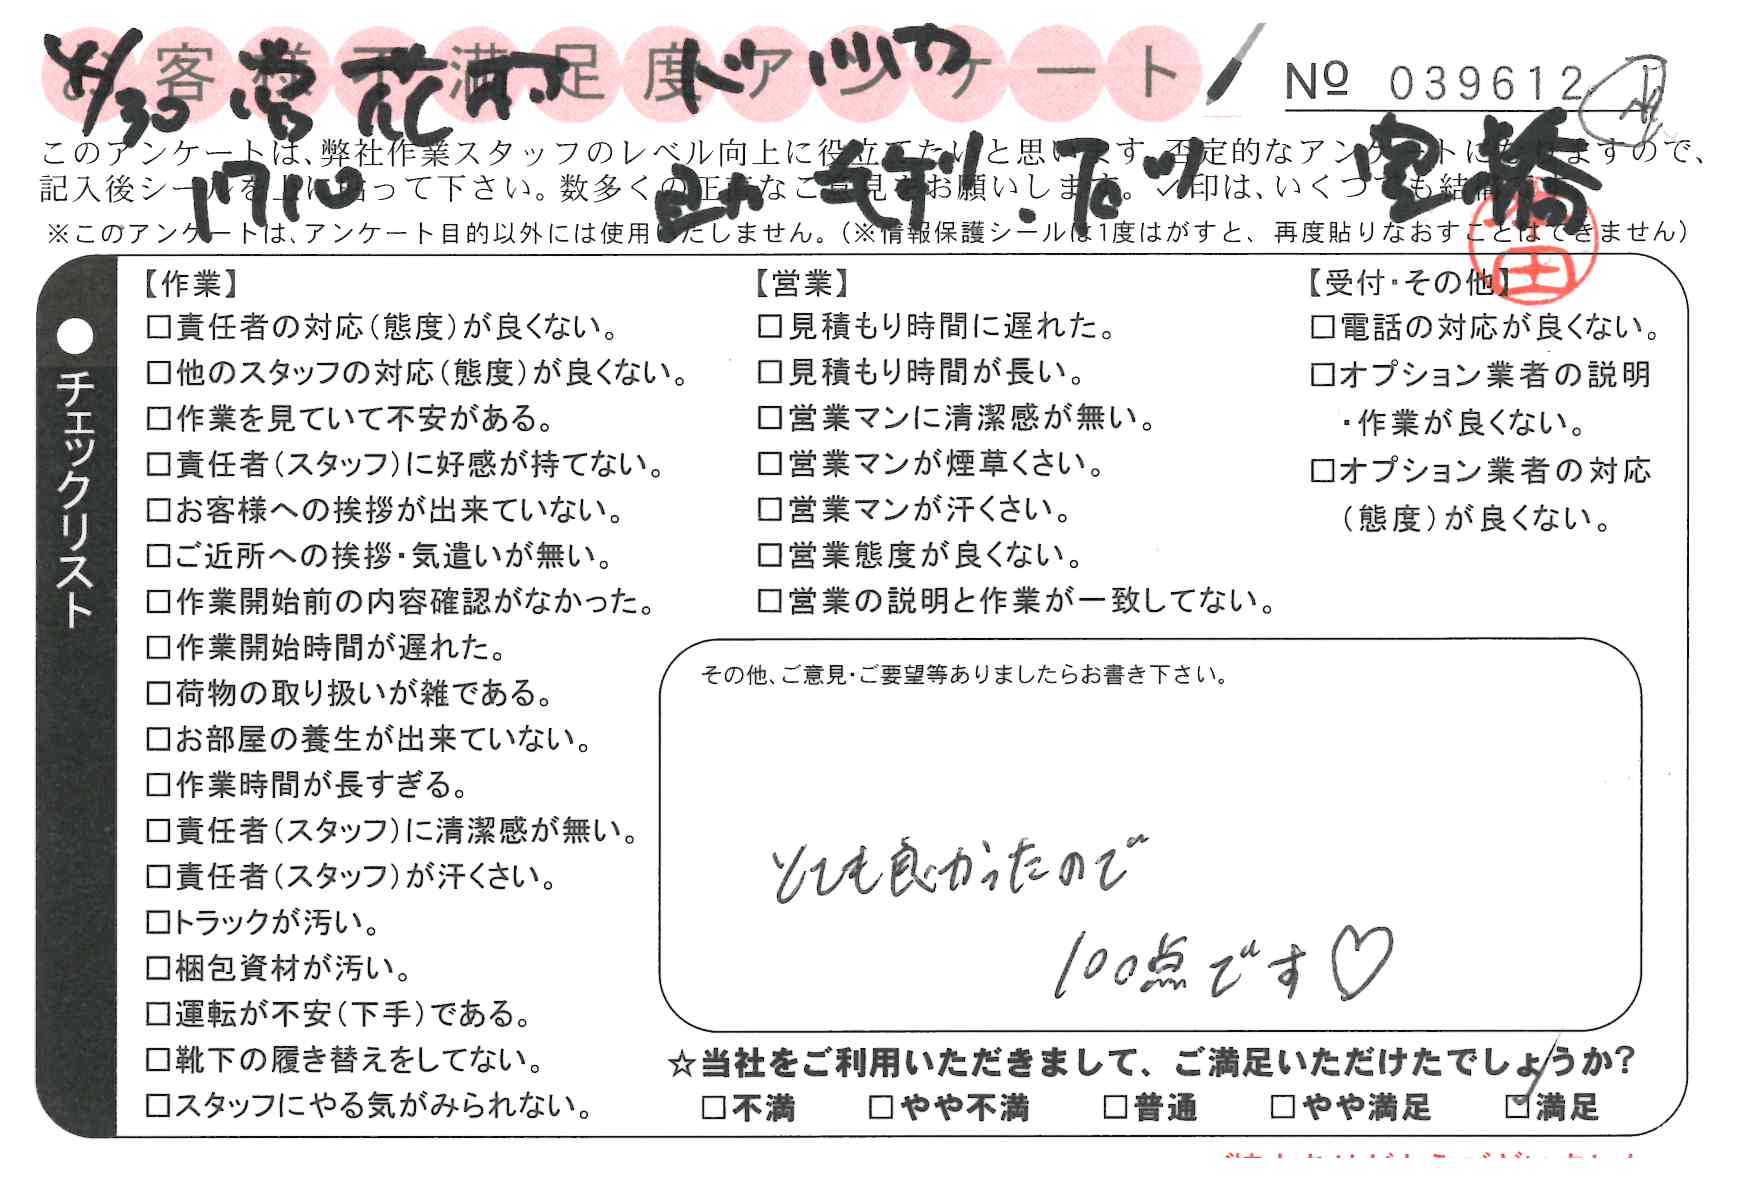 お客様不満足度アンケート
Nº 039612
4/30
このアンケートは、弊社作業スタッフのレベル向上に役立てたいと思います。否定的なアンケートになりますので、
記入後シールを上に貼って下さい。数多くの正直なご意見をお願いします。✓印は、いくつでも結構です。
※このアンケートは、アンケート目的以外には使用いたしません。(※情報保護シールは1度はがすと、再度貼りなおすことはできません)
●チェックリスト
【作業】
□責任者の対応(態度)が良くない。
□他のスタッフの対応(態度)が良くない。
□作業を見ていて不安がある。
□責任者(スタッフ)に好感が持てない。
□お客様への挨拶が出来ていない。
□ご近所への挨拶・気遣いが無い。
□作業開始前の内容確認がなかった。
□作業開始時間が遅れた。
□荷物の取り扱いが雑である。
□お部屋の養生が出来ていない。
□作業時間が長すぎる。
□責任者(スタッフ)に清潔感が無い。
□責任者(スタッフ)が汗くさい。
□トラックが汚い。
□梱包資材が汚い。
□運転が不安(下手)である。
□靴下の履き替えをしてない。
□スタッフにやる気がみられない。
【営業】
□見積もり時間に遅れた。
□見積もり時間が長い。
□営業マンに清潔感が無い。
□営業マンが煙草くさい。
□営業マンが汗くさい。
□営業態度が良くない。
□営業の説明と作業が一致してない。
【受付・その他】
□電話の対応が良くない。
□オプション業者の説明
・作業が良くない。
□オプション業者の対応
(態度)が良くない。
その他、ご意見・ご要望等ありましたらお書き下さい。
とても良かったので
100点です♡
☆当社をご利用いただきまして、ご満足いただけたでしょうか?
□不満 □やや不満 □普通 □やや満足 ☑満足